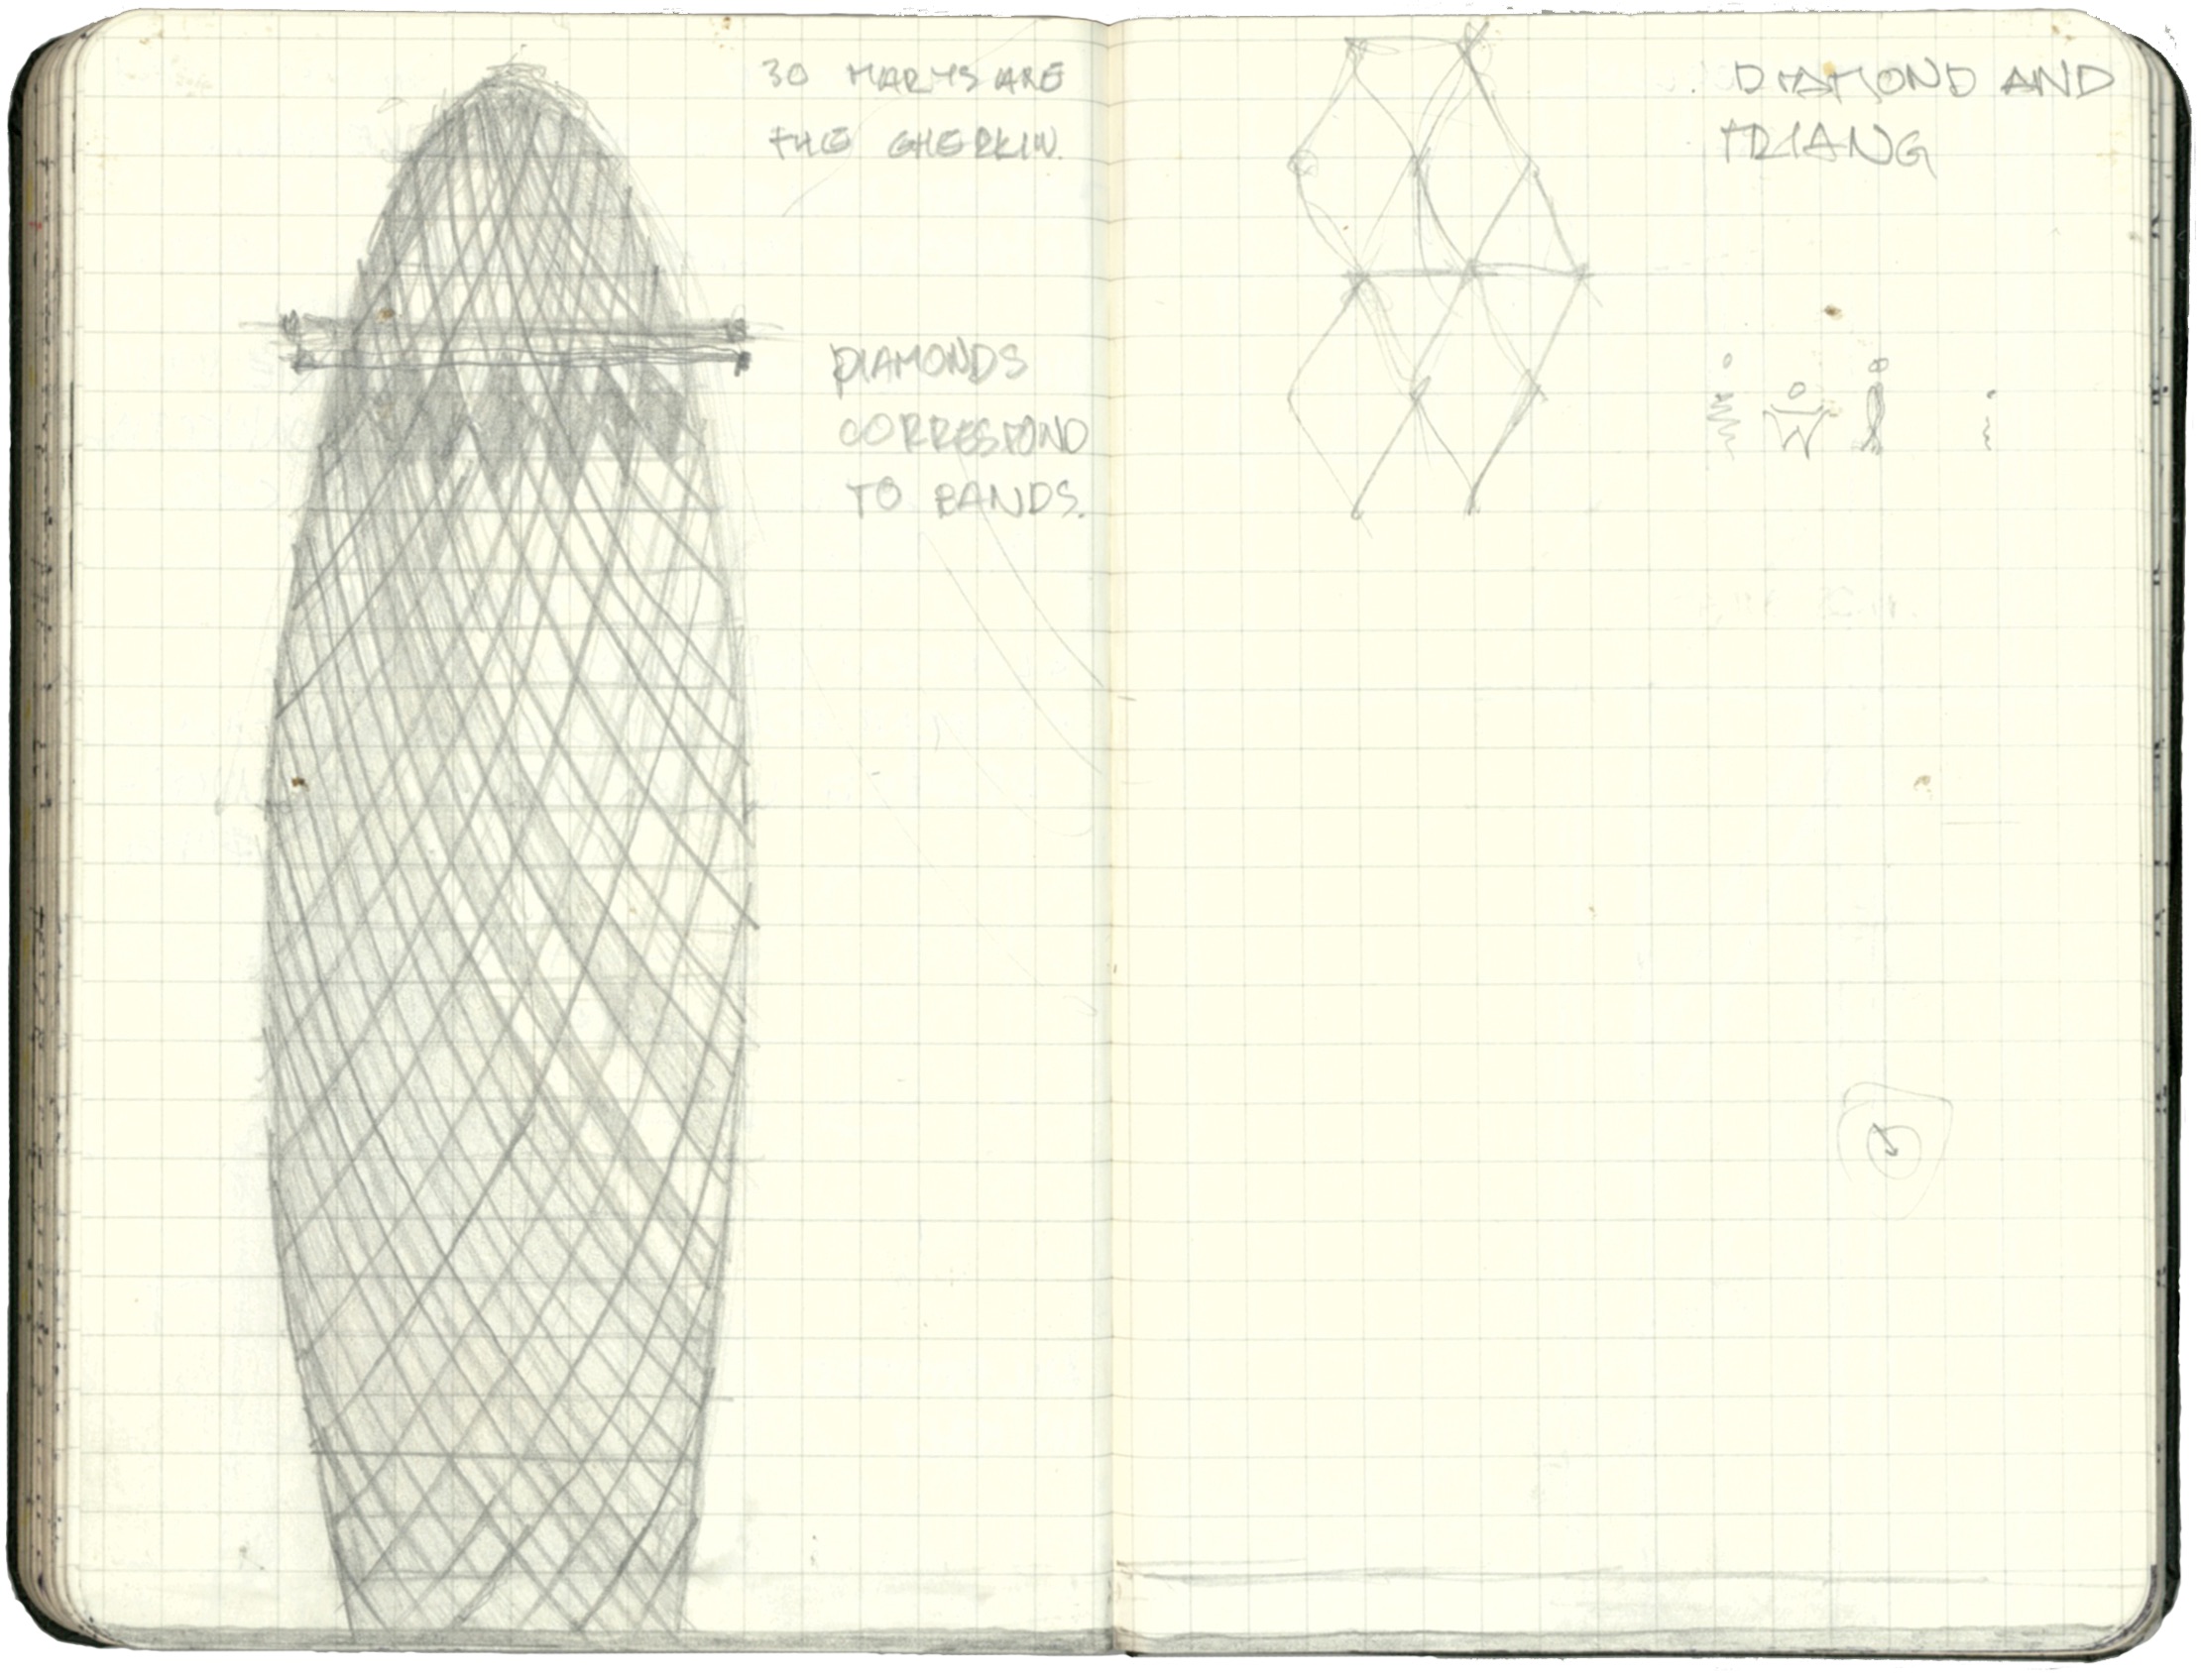 30 MARYS ARE
THE GHERKIN.
DIAMONDS
CORRESPOND
TO BANDS.
DIAMOND AND
TRIANG